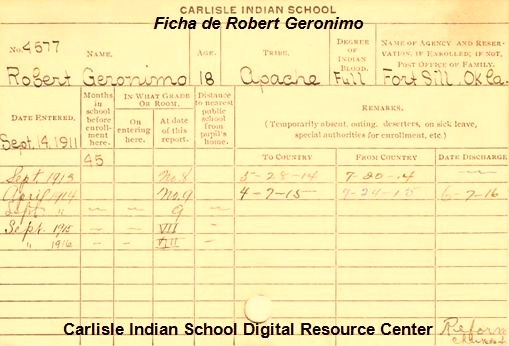 CARLISLE INDIAN SCHOOL
Ficha de Robert Geronimo
No. 4577 NAME. AGE. TRIBE. DEGREE OF INDIAN BLOOD. NAME OF AGENCY AND RESERVATION, IF ENROLLED; IF NOT, POST OFFICE OF FAMILY.
Robert Geronimo 18 Apache Full Fort Sill, Okla.
DATE ENTERED. Months in school before enrollment here. IN WHAT GRADE OR ROOM. On entering here. At date of this report. Distance to nearest public school from pupil's home. REMARKS.
(Temporarily absent, outing, deserters, on sick leave, special authorities for enrollment, etc.)
Sept. 14, 1911
45 TO COUNTRY FROM COUNTRY DATE DISCHARGE
Sept 1913 No. 8 5-28-14 7-20-14 —
April 1914 No. 9 4-7-15 9-24-15 6-7-16
Sept. " — — 9 —
Sept. 1915 — — VII —
" 1916 — —
Carlisle Indian School Digital Resource Center
Reform